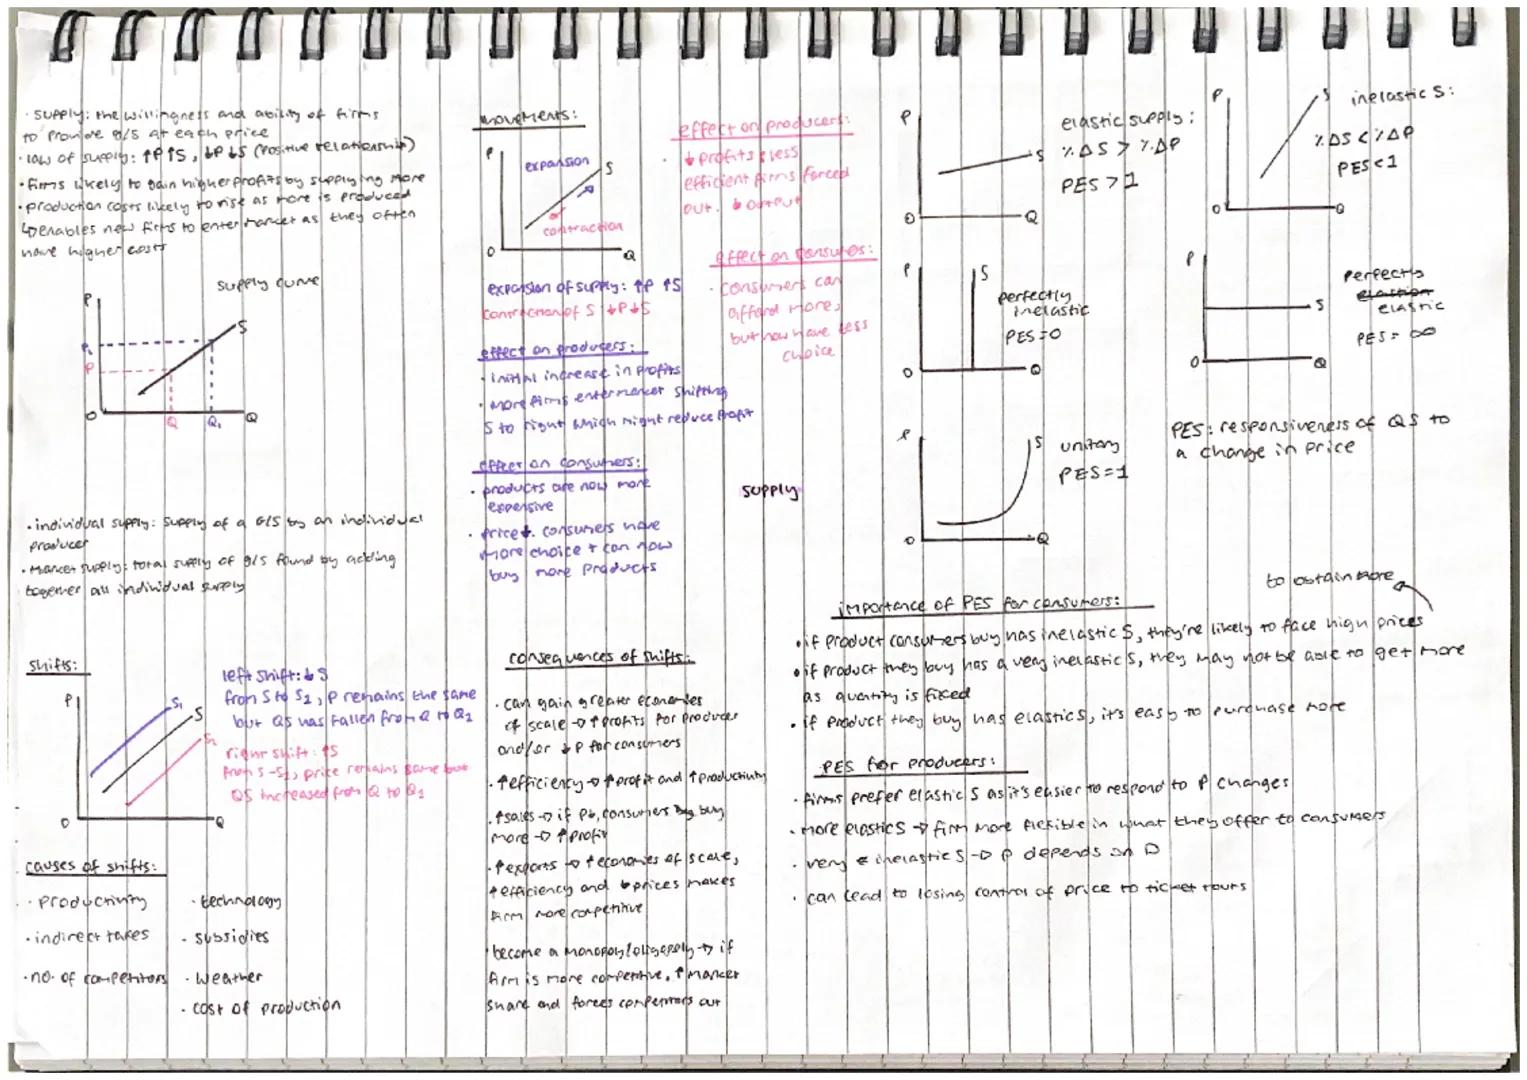 · supply: the willingness and ability of firms
to provide g/s at each price
· law of supply: ↑P ↑S, ↓P ↓S (positive relationship)
· firms likely to gain higher profits by supplying more
· production costs likely to rise as more is produced
↳ enables new firms to enter market as they often
have higher costs
supply curve
P
P₁
P
S
0
Q
Q₁
Q
· individual supply: supply of a G/S by an individual
producer
· Market supply: total supply of g/s found by adding
together all individual supply
shifts:
P
S₁
S
S₂
0
Q
left shift: ↓S
from S to S₁, P remains the same
but QS has fallen from Q to Q₁
right shift: ↑S
from S-S₂, price remains same but
QS increased from Q to Q₁
causes of shifts:
· productivity
· indirect taxes
· no. of competitors
· technology
· subsidies
· weather
· cost of production
movements:
P
expansion
S
contraction
0
Q
expansion of supply: ↑P ↑S
contraction of S ↓P↓S
effect on producers:
· initial increase in profits
· more firms enter market shifting
S to right which might reduce profit
effect on consumers:
· products are now more
expensive
· price↓. consumers have
more choice + can now
buy more products
consequences of shifts:
· can gain greater economies
of scale → ↑profits for producer
and/or ↓P for consumers
· ↑efficiency → ↑profit and ↑productivity
· ↑sales → if P↓, consumers buy
more → ↑profit
· ↑exports → ↑economies of scale,
↑efficiency and ↓prices makes
firm more competitive
· become a monopoly/oligopoly → if
firm is more competitive, ↑market
share and forces competitors out
effect on producers:
· ↓profits & less
efficient firms forced
out. ↓output
effect on consumers:
· consumers can
afford more,
but now have less
choice
supply
P
S
0
Q
elastic supply:
%ΔS > %ΔP
PES > 1
P
S
0
Q
inelastic S:
%ΔS < %ΔP
PES < 1
P
S
0
Q
perfectly
inelastic
PES=0
P
S
0
Q
perfectly
elastic
PES = ∞
P
S
0
Q
unitary
PES=1
PES: responsiveness of QS to
a change in price
importance of PES for consumers:
to obtain more
· if product consumers buy has inelastic S, they're likely to face high prices
· if product they buy has a very inelastic S, they may not be able to get more
as quantity is fixed
· if product they buy has elastic S, it's easy to purchase more
PES for producers:
· firms prefer elastic S as it's easier to respond to P changes
· more elastic S → firm more flexible in what they offer to consumers
· very inelastic S → P depends on D
· can lead to losing control of price to ticket touts